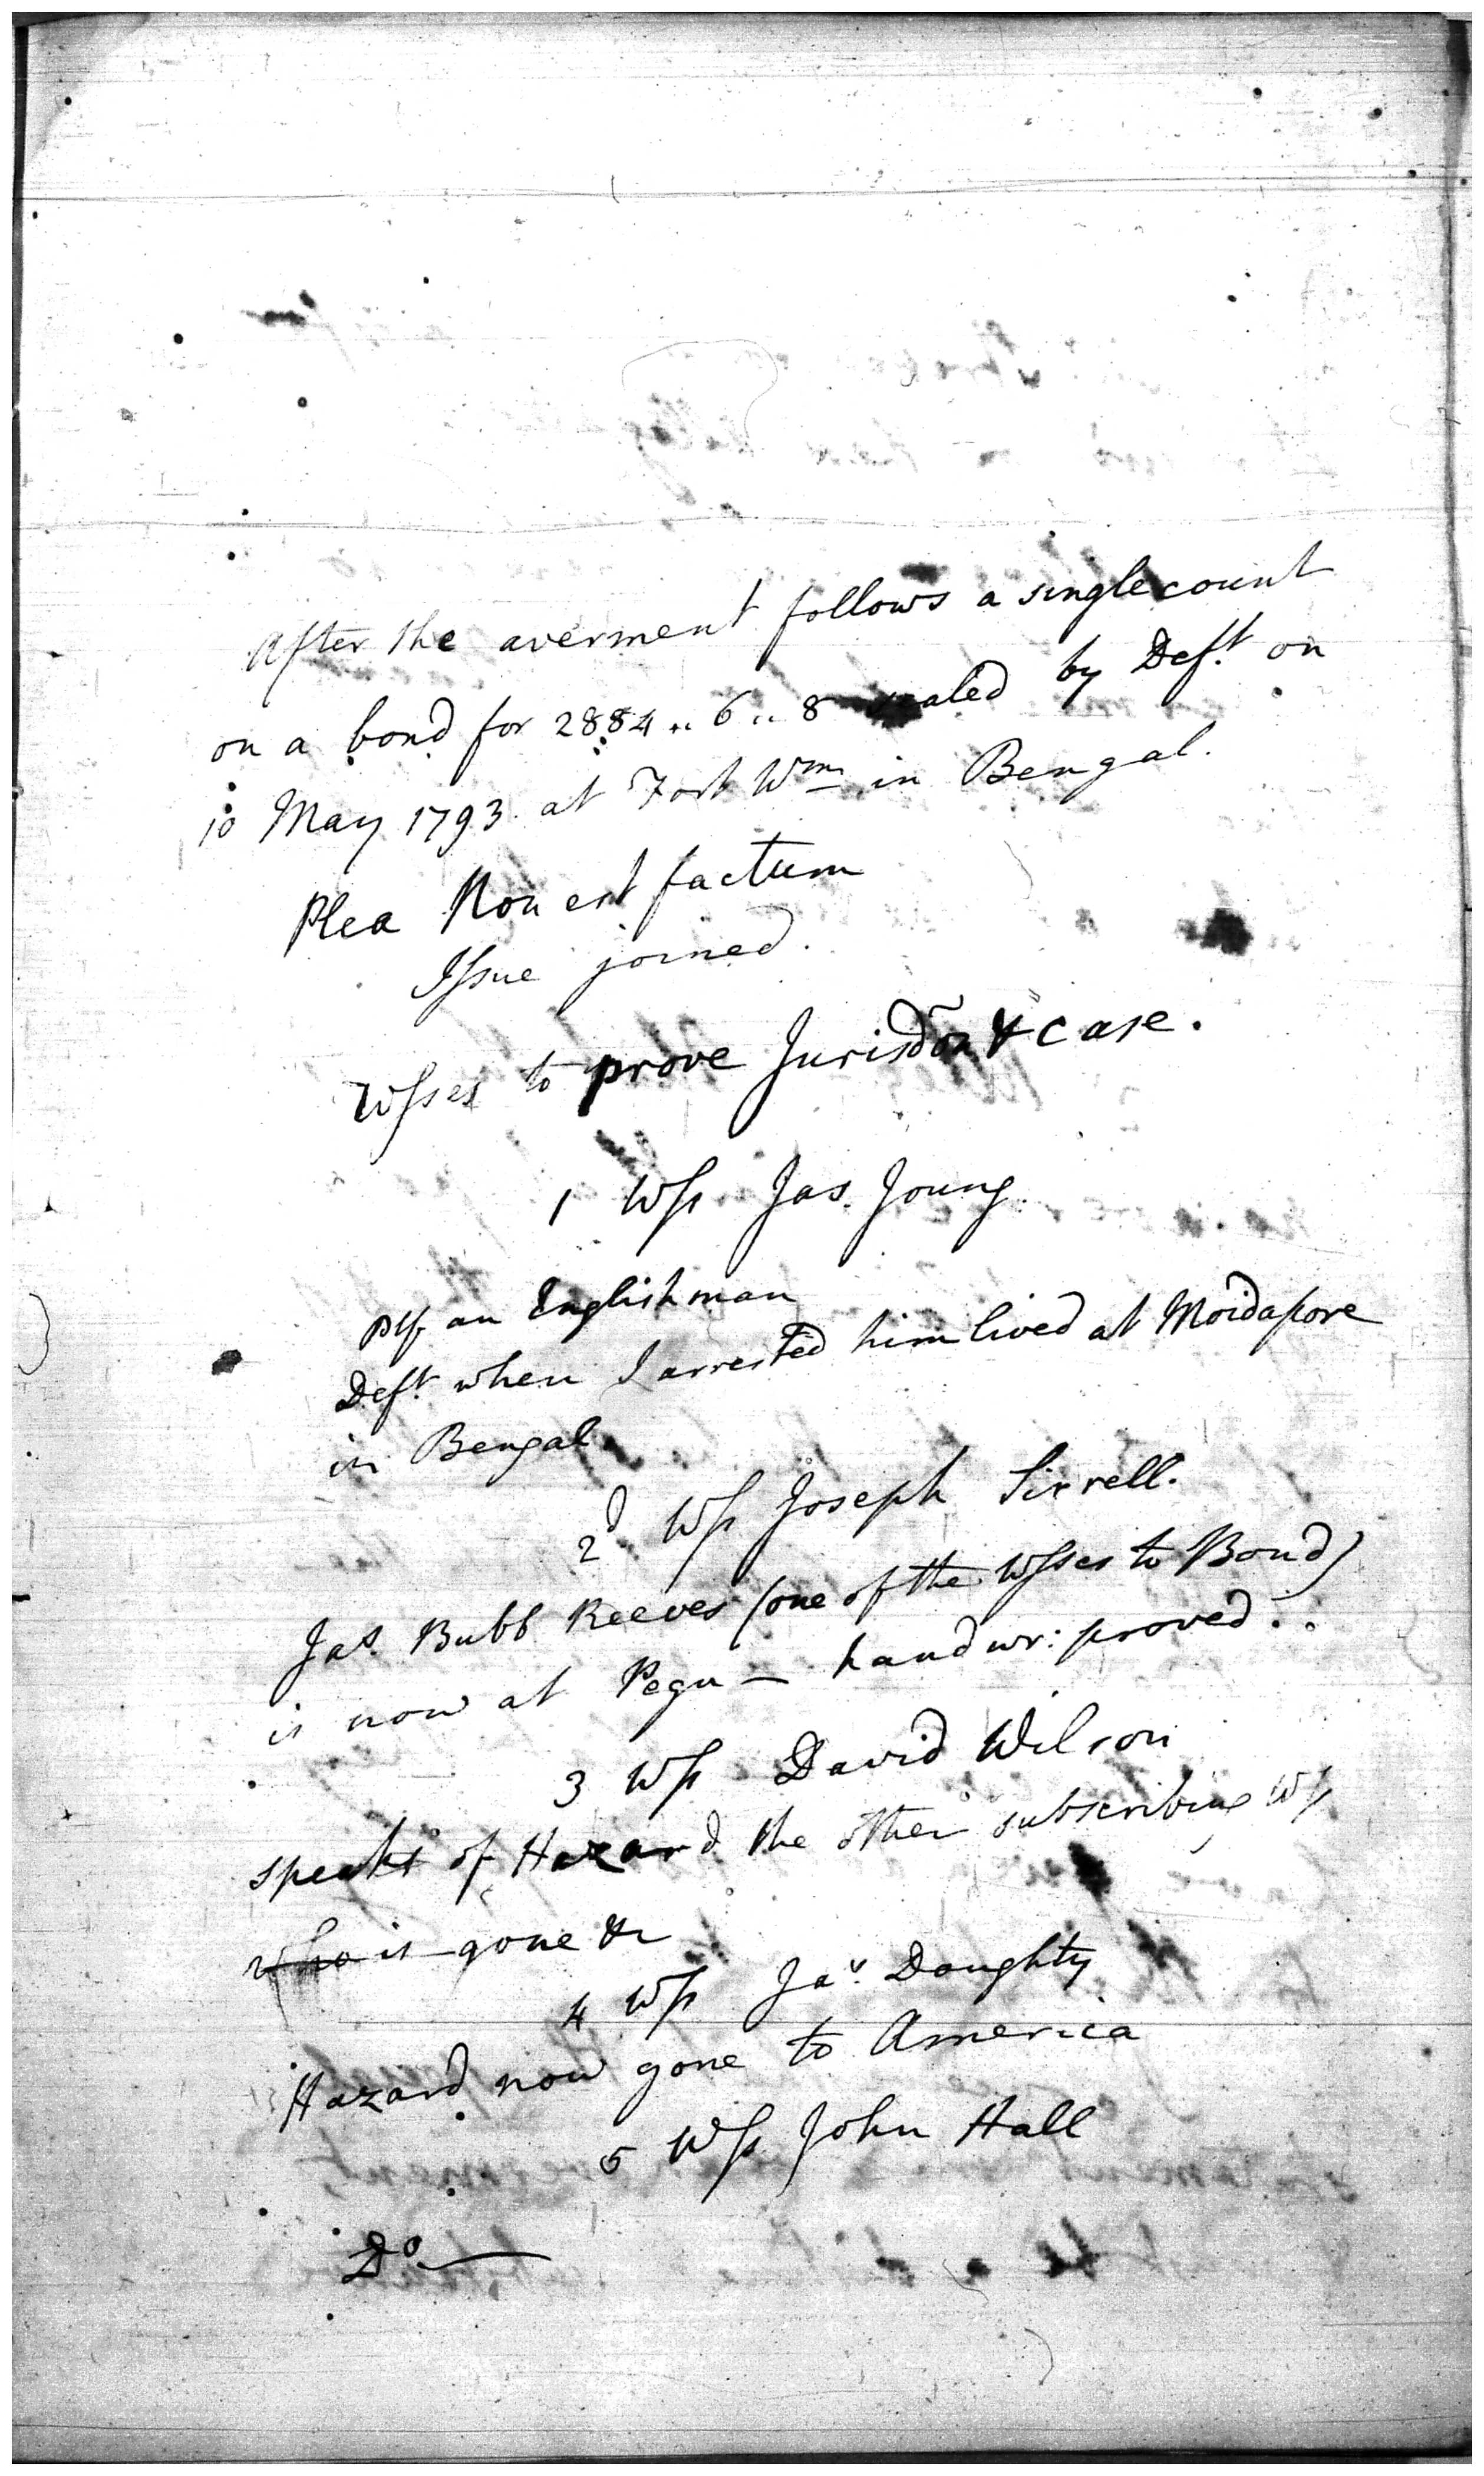 After the averment follows a single count
on a bond for 2884 .. 6 .. 8 sealed by Deft. on
10 May 1793. at Fort Wm in Bengal.
Plea Non est factum
Issue joined.
Wsses to prove Jurisdon & case.
1 Wss Jas. Joung.
Plf an Englishman
Deft. when I arrested him lived at Moidapore
in Bengal
2d Wss Joseph Sirrell.
Jas. Bubb Reeves (one of the Wsses to Bond)
is now at Pegu — handwr: proved..
3 Wss David Wilson
speaks of Hazard the other subscribing Wss
who is gone &c
4 Wss Jas. Doughty
Hazard now gone to America
5 Wss John Hall
Do. —